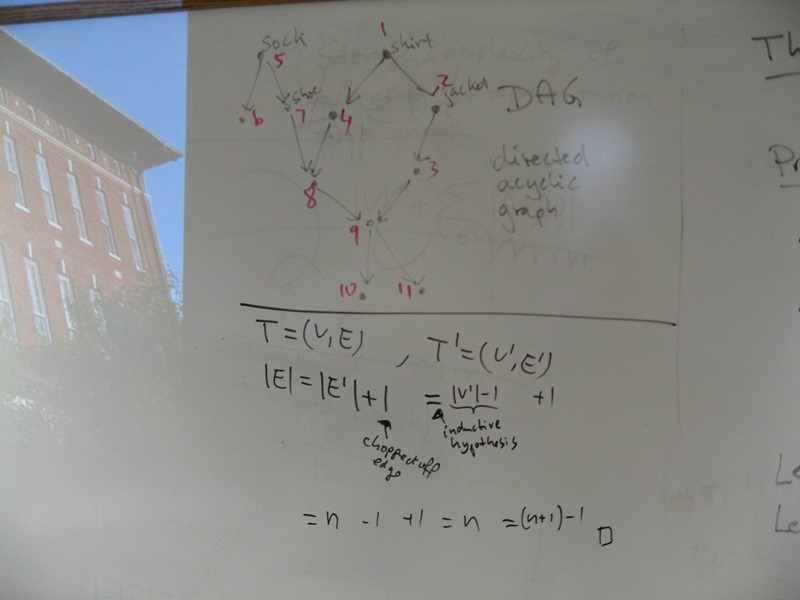 1
sock
shirt
5
2
jacket
shoe
6
7
4
DAG
3
directed
acyclic
graph
8
9
10
11
T=(V,E) , T'=(V',E')
|E|=|E'|+1 = |V'|-1 +1
chopped off
edge
inductive
hypothesis
=n -1 +1 = n =(n+1)-1 □
Th
Pr
Le
Le